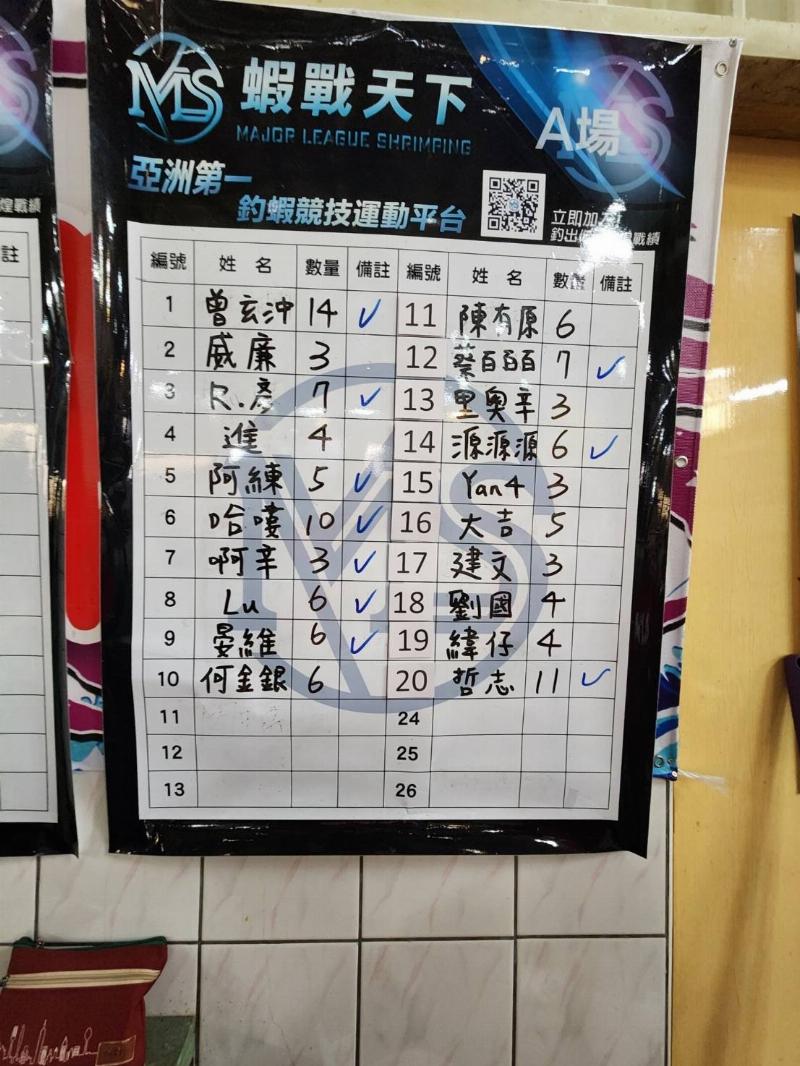 MLS 蝦戰天下
MAJOR LEAGUE SHRIMPING
A場
亞洲第一
釣蝦競技運動平台
立即加
釣出 戰績
煌戰績
註
編號 姓名 數量 備註 編號 姓名 數量 備註
1 曾玄沖 14 ✓ 11 陳有原 6
2 威廉 3 12 蔡百百百 7 ✓
3 R.彥 7 ✓ 13 里奧辛 3
4 進 4 14 源源源 6 ✓
5 阿練 5 ✓ 15 Yan4 3
6 哈嘍 10 ✓ 16 大吉 5
7 啊辛 3 ✓ 17 建文 3
8 Lu 6 ✓ 18 劉國 4
9 晏維 6 ✓ 19 緯仔 4
10 何金銀 6 20 哲志 11 ✓
11 24
12 25
13 26